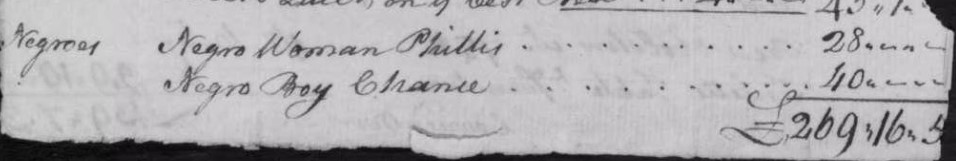 45 " 1 "
Negroes Negro Woman Phillis . . . . . . . . . . 28 " — " —
Negro Boy Chance . . . . . . . . . . . 40 " — " —
£ 269 " 16 " 5